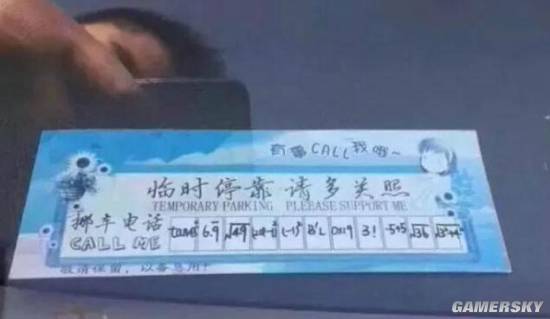 有事CALL我哦~
临时停靠 请多关照
TEMPORARY PARKING PLEASE SUPPORT ME
挪车电话
CALL ME
√49 (-1)² 0×19 3! -5+5 √36 √3²+4²
敬请保留，以备急用！
GAMERSKY